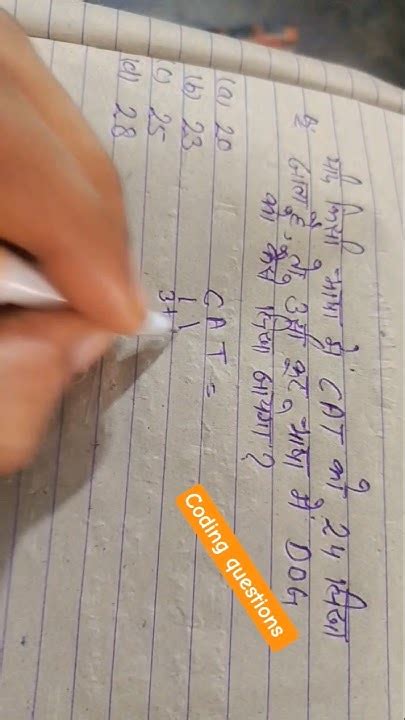 यदि किसी भाषा में CAT को 24 लिखा
जाता है, तो उसी कूट भाषा में DOG
को कैसे लिखा जायेगा?
(a) 20
(b) 23
(c) 25
(d) 28
CAT =
3+1
Coding questions